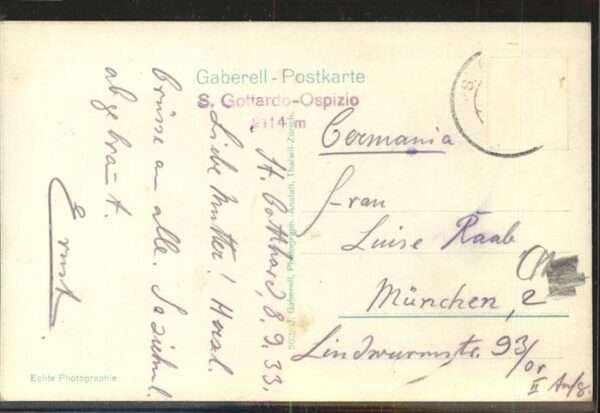 Gaberell - Postkarte
S. Gottardo-Ospizio
2114 m
St. Gotthard, 8.9.33.
Liebe Mutter! Herzl.
Grüsse an alle. So ziehml.
abgebräut.
Ernst.
J. Gaberell, Photograph. Anstalt, Thalwil-Zürich
Germania
Frau
Luise Raab
München, 2
Lindwurmstr. 93/or
II Aufg.
Echte Photographie.